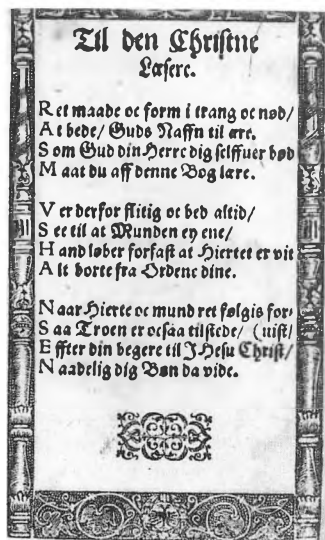 Til den Christne
Læsere.
Ret maade oc form i trang oc nød/
At bede/ Guds Naffn til ære.
Som Gud din Herre dig selffuer bød
Maat du aff denne Bog lære.
Ver derfor flitig oc bed altid/
See til at Munden ey ene/
Hand løber forfast at Hiertet er vit
Alt borte fra Ordene dine.
Naar Hierte oc mund ret følgis for-
Saa Troen er ocsaa tilstede/ (uist/
Effter din begere til JHesu Christ/
Naadelig dig Bøn da vide.